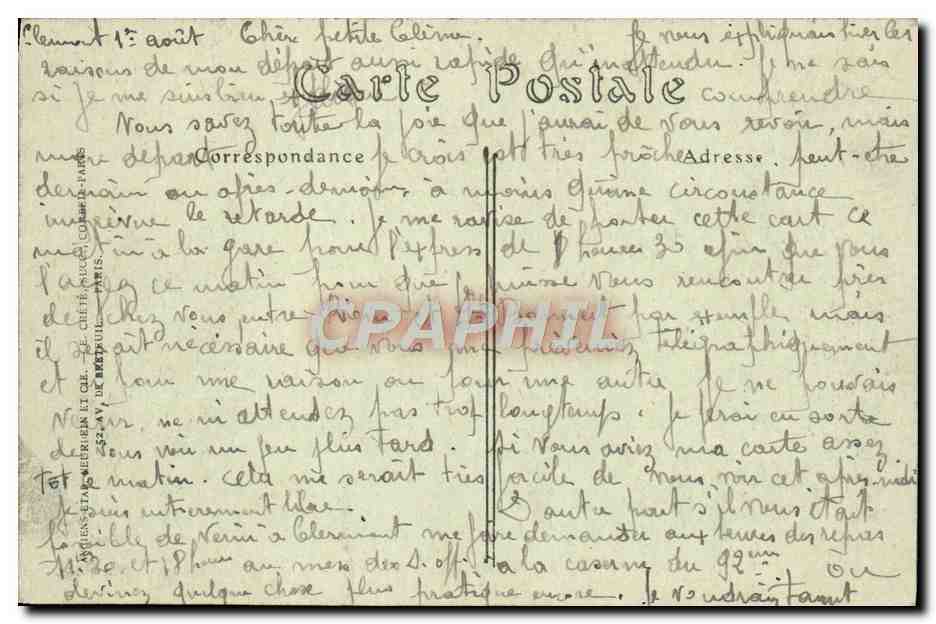 Clermont 1er août Chère petite Célina. Je vous expliquais hier les
raisons de mon départ aussi rapide qu'inattendu. Je ne sais
Carte Postale
si je me suis bien comprendre
Vous savez toute la joie que j'aurai de vous revoir, mais
Correspondance
Adresse
mon départ je crois est très proche, peut-être
demain ou après-demain, à moins qu'une circonstance
imprévue le retarde. Je me ravise de porter cette carte ce
matin à la gare pour l'express de 8 heures 30 afin que vous
l'ayez ce matin pour que je puisse vous rencontrer près
de chez vous entre par exemple, mais
il serait nécessaire que vous me télégraphiquement
et si pour une raison ou pour une autre je ne pouvais
venir, ne m'attendez pas trop longtemps. Je ferai en sorte
de vous voir un peu plus tard. Si vous aviez ma carte assez
tôt le matin. Cela me serait très facile de vous voir cet après-midi
Je suis entièrement libre. D'autre part s'il vous était
possible de venir à Clermont me faire demander aux heures des repas
11.30 et 18 heures au mess des s. off. à la caserne du 92ème Ou
devinez quelque chose plus pratique encore. Je voudrais tant
ANCIENS ETAB. NEURDEIN ET CIE. - E. CRÉTÉ, SUCC., CORBEIL-PARIS
52, AV. DE BRETEUIL. - PARIS.
CPAPHIL